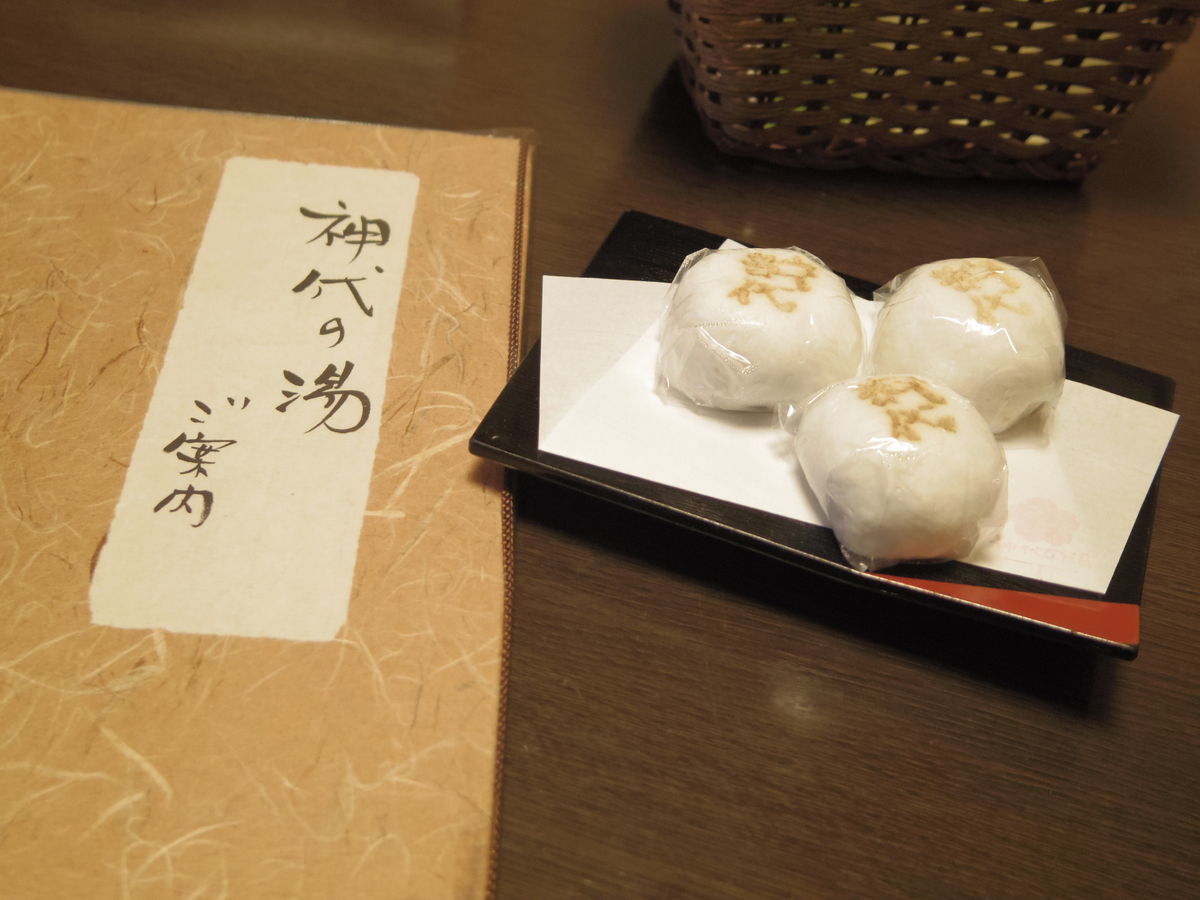 神代の湯
ご案内
神代
神代
神代